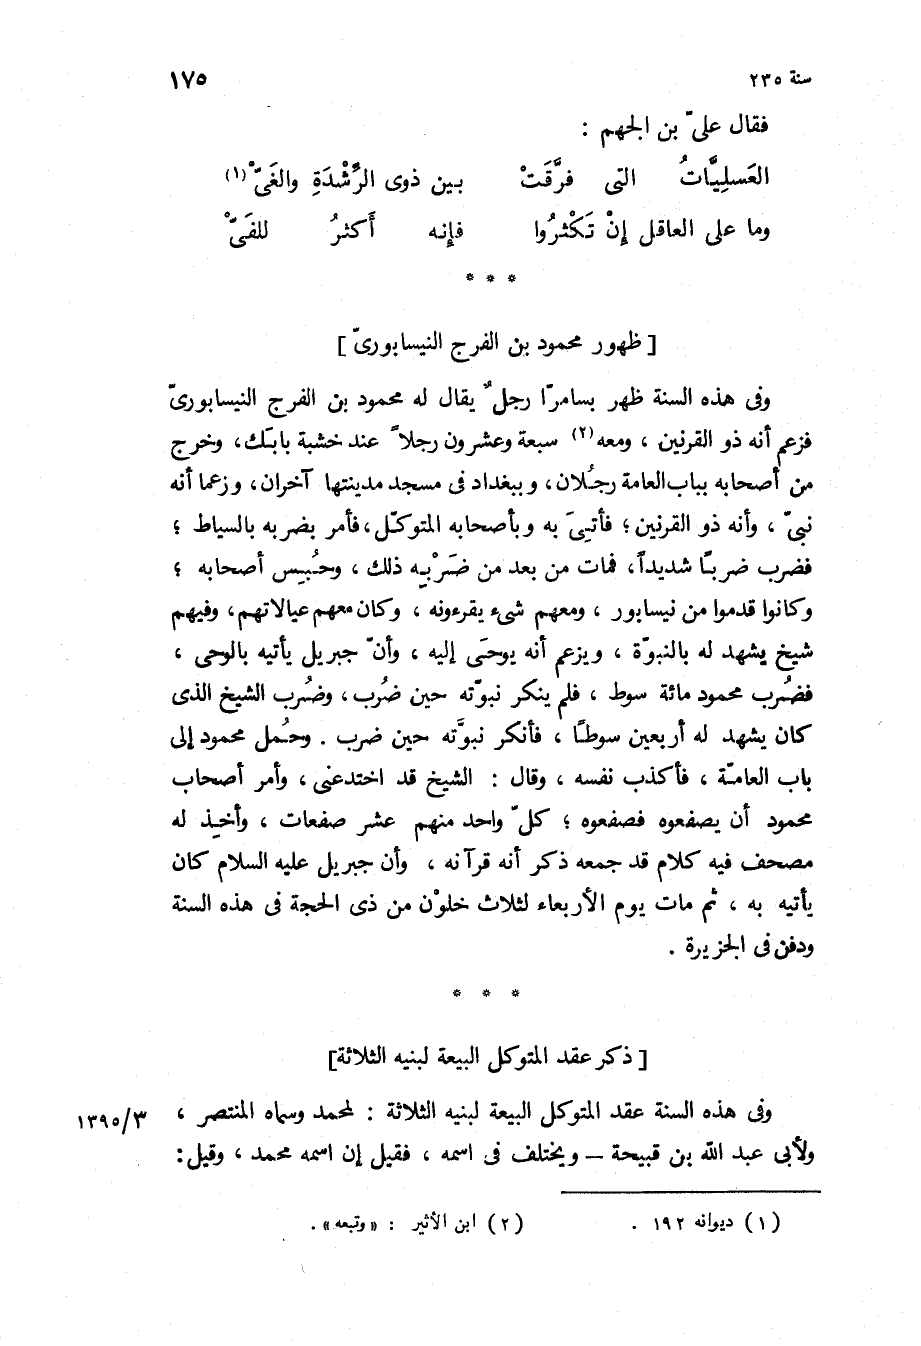 سنة ٢٣٥ ١٧٥
فقال علىّ بن الجهم :
العَسليَّاتُ التى فرَّقَتْ بين ذوى الرَّشْدَةِ والغَىّْ(١)
وما على العاقل إنْ تَكْثرُوا فإنه أَكثرُ للفَىّْ
* * *
[ ظهور محمود بن الفرج النيسابورىّ ]
وفى هذه السنة ظهر بسامرّا رجلٌ يقال له محمود بن الفرج النيسابورىّ
فزعم أنه ذو القرنين ، ومعه(٢) سبعة وعشرون رجلاً عند خشبة بابَك، وخرج
من أصحابه بباب العامة رجُلان، وببغداد فى مسجد مدينتها آخران، وزعما أنه
نبىّ ، وأنه ذو القرنين؛ فأتِىَ به وبأصحابه المتوكّل، فأمر بضربه بالسياط ؛
فضرب ضربًا شديداً، فمات من بعد من ضَرْبِه ذلك ، وحُبِس أصحابه ؛
وكانوا قدموا من نيسابور ، ومعهم شىء يقرءونه ، وكان معهم عيالاتهم، وفيهم
شيخ يشهد له بالنبوّة ، ويزعم أنه يوحَى إليه ، وأنّ جبريل يأتيه بالوحى ،
فضُرب محمود مائة سوط ، فلم ينكر نبوّته حين ضُرب، وضُرب الشيخ الذى
كان يشهد له أربعين سوطًا ، فأنكر نبوَّته حين ضرب . وحُمل محمود إلى
باب العامّة ، فأكذب نفسه ، وقال : الشيخ قد اختدعنى، وأمر أصحاب
محمود أن يصفعوه فصفعوه ؛ كلّ واحد منهم عشر صفعات ، وأخِذ له
مصحف فيه كلام قد جمعه ذكر أنه قرآنه ، وأن جبريل عليه السلام كان
يأتيه به ، ثم مات يوم الأربعاء لثلاث خلوْن من ذى الحجة فى هذه السنة
ودفن فى الجزيرة .
* * *
[ ذكر عقد المتوكل البيعة لبنيه الثلاثة]
وفى هذه السنة عقد المتوكل البيعة لبنيه الثلاثة : لمحمد وسماه المنتصر ، ١٣٩٥/٣
ولأبى عبد الله بن قبيحة – ويختلف فى اسمه ، فقيل إن اسمه محمد ، وقيل:
(١) ديوانه ١٩٢ . (٢) ابن الأثير : «وتبعه».